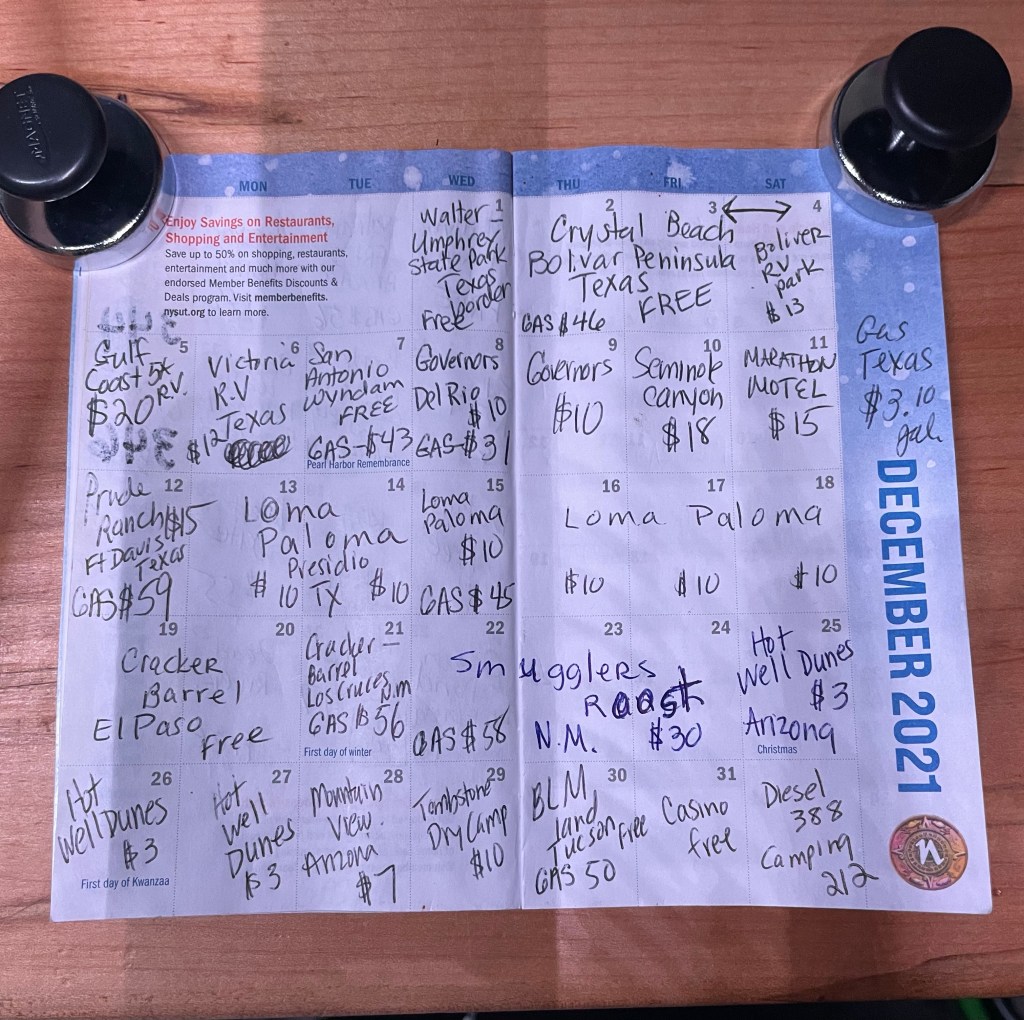 MAGNET
MON
TUE
WED
THU
FRI
SAT
Enjoy Savings on Restaurants,
Shopping and Entertainment
Save up to 50% on shopping, restaurants,
entertainment and much more with our
endorsed Member Benefits Discounts &
Deals program. Visit memberbenefits.
nysut.org to learn more.
1
Walter
Umphrey
State Park
Texas
border
Free
2
3
Crystal Beach
Bolivar Peninsula
Texas
FREE
GAS $46
4
Boliver
RV
park
$13
5
Gulf
Coast
RV.
$20
6
Victoria
R.V
Texas
$12
7
San
Antonio
Wyndam
FREE
GAS-$43
Pearl Harbor Remembrance
8
Governors
Del Rio
$10
GAS-$31
9
Governors
$10
10
Seminole
Canyon
$18
11
MARATHON
MOTEL
$15
Gas
Texas
$3.10
gal.
12
Prude
Ranch $15
Ft Davis
Texas
GAS $59
13
14
Loma
Paloma
Presidio
TX
$10
$10
15
Loma
Paloma
$10
GAS $45
16
17
18
Loma Paloma
$10
$10
$10
19
20
Cracker
Barrel
El Paso
Free
21
Cracker
Barrel
Los Cruces N.m
GAS $56
First day of winter
22
23
24
Smugglers
Roost
GAS $58
N.M.
$30
25
Hot
Well Dunes
$3
Arizona
Christmas
26
Hot
Well Dunes
$3
First day of Kwanzaa
27
Hot
Well
Dunes
$3
28
Mountain
View.
Arizona
$7
29
Tombstone
Dry Camp
$10
30
BLM
land
Tucson free
GAS 50
31
Casino
free
Diesel
388
Camping
212
DECEMBER 2021
n